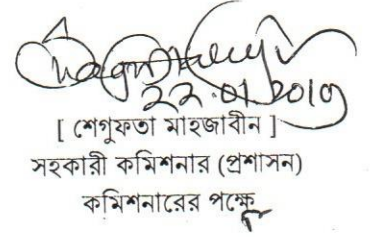 22.01.2017
[ শেগুফতা মাহজাবীন ]
সহকারী কমিশনার (প্রশাসন)
কমিশনারের পক্ষে